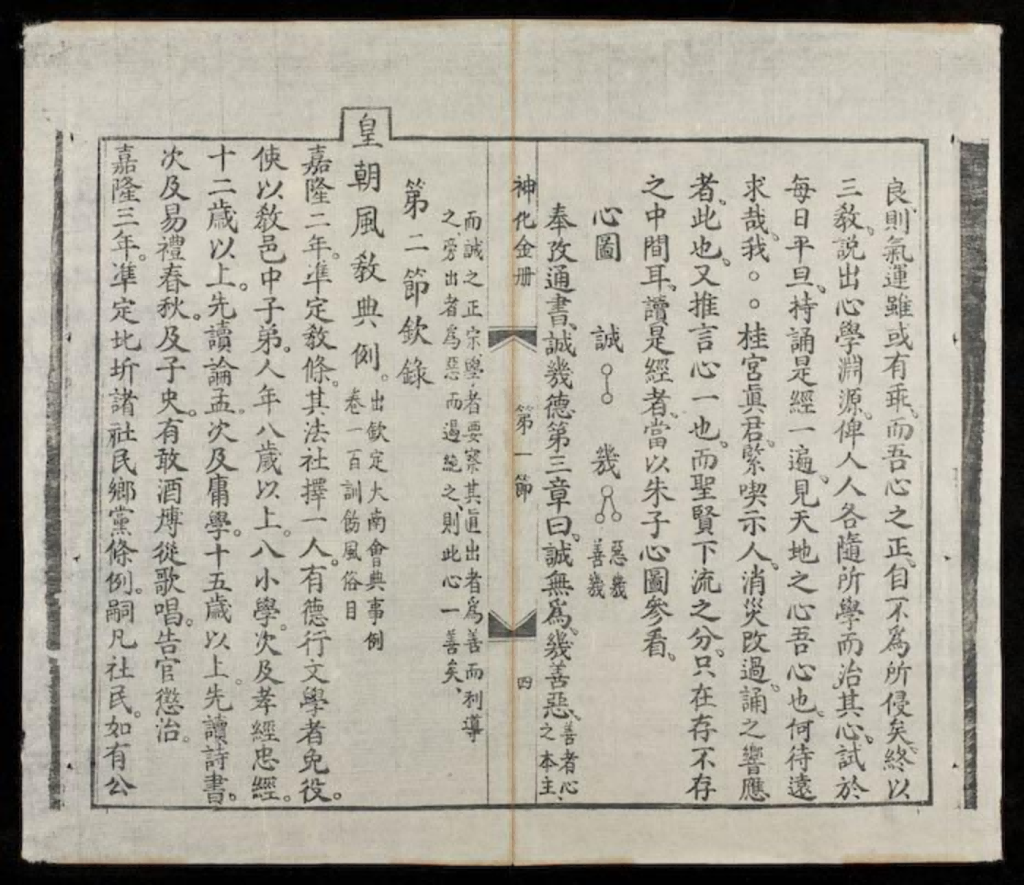 良則氣運雖或有乖而吾心之正自不爲所侵矣終以
三敎說出心學淵源俾人人各隨所學而治其心試於
每日平旦持誦是經一遍見天地之心吾心也何待遠
求哉我。。桂宮眞君繁喫示人消災改過誦之響應
者此也又推言心一也而聖賢下流之分只在存不存
之中間耳讀是經者當以朱子心圖參看
心圖 誠 幾 惡幾 善幾
奉攷通書誠幾德第三章曰誠無爲幾善惡善者心之本主
神化金冊 第一節 四
而誠之正宗學者要察其直出者爲善而利導
之旁出者爲惡而遏絕之則此心一善矣
第二節欽錄
皇朝風敎典例。出欽定大南會典事例卷一百訓飭風俗目
嘉隆二年。準定敎條。其法社擇一人。有德行文學者免役。
使以敎邑中子弟。人年八歲以上。入小學。次及孝經忠經。
十二歲以上。先讀論孟。次及庸學。十五歲以上。先讀詩書。
次及易禮春秋。及子史。有敢酒慱從歌唱。告官懲治。
嘉隆三年。準定北圻諸社民鄉黨條例。嗣凡社民。如有公